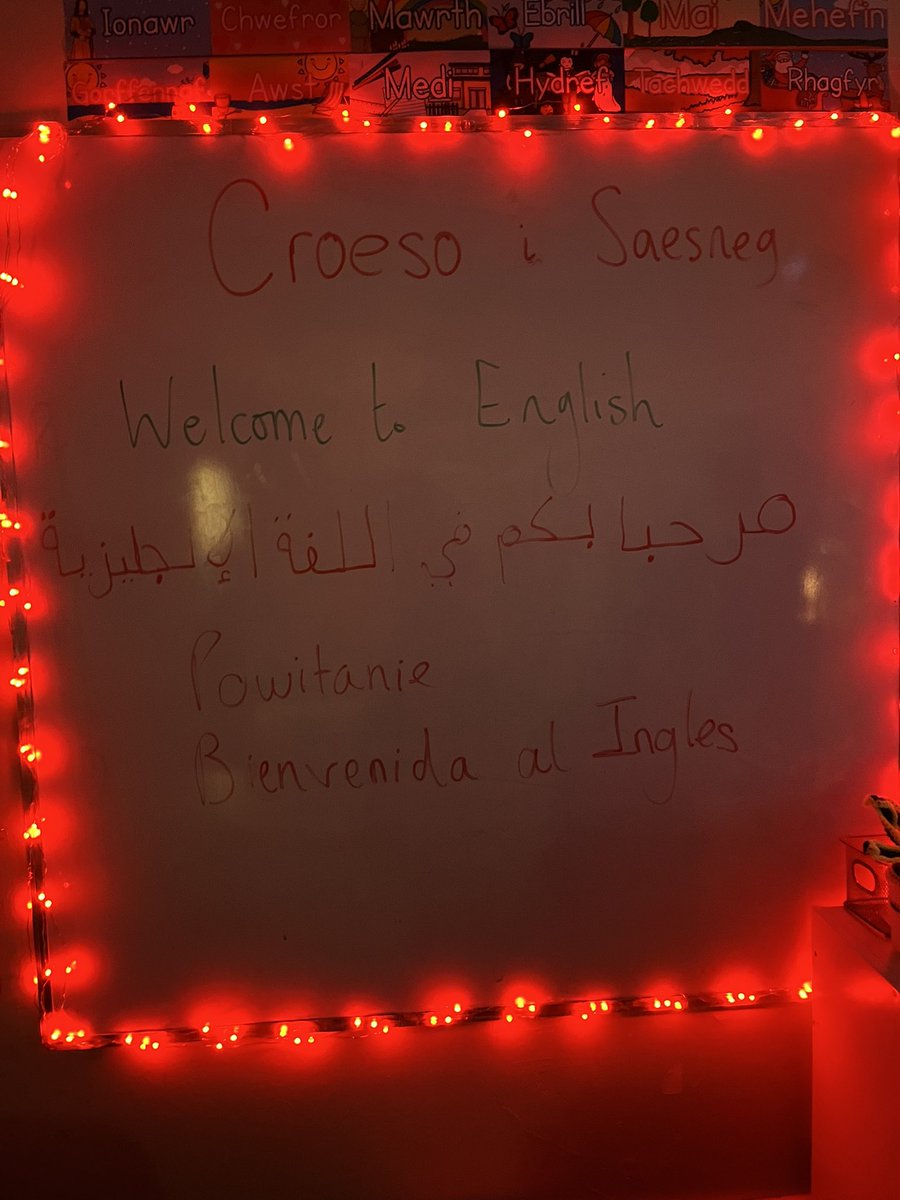 Ionawr Chwefror Mawrth Ebrill Mai Mehefin
Gorffennaf Awst Medi Hydref Tachwedd Rhagfyr
Croeso i Saesneg
Welcome to English
مرحبا بكم في اللغة الإنجليزية
Powitanie
Bienvenida al Ingles